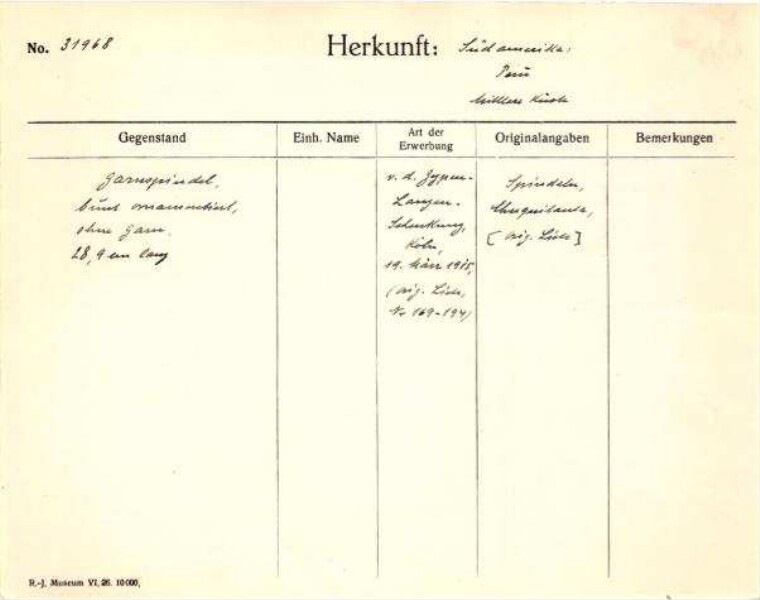 No. 31968
Herkunft: Südamerika:
Perú
Mittlere Küste
Gegenstand
Einh. Name
Art der
Erwerbung
Originalangaben
Bemerkungen
Garnspindel,
bunt ornamentiert,
ohne Garn.
28,9 cm lang
v. d. Zypen-
Langen-
Schenkung,
Köln,
19. März 1915,
(orig. Liste,
No 169-194)
Spindeln,
[orig. Liste]
R.-J. Museum VI. 26. 10000.